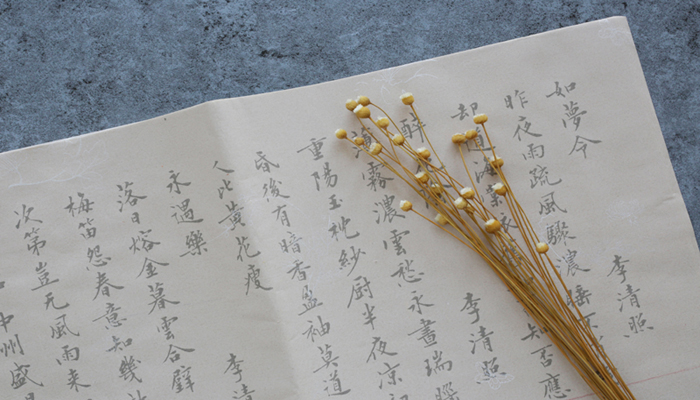 如夢令 李清照
昨夜雨疏風驟濃睡不
却道海棠依 知否應
醉 李清照
薄霧濃雲愁永晝瑞腦
重陽玉枕紗厨半夜涼初
昏後有暗香盈袖莫道
人比黃花瘦
永遇樂 李清
落日熔金暮雲合璧
梅笛怨春意知幾
次第豈无風雨來
中州盛